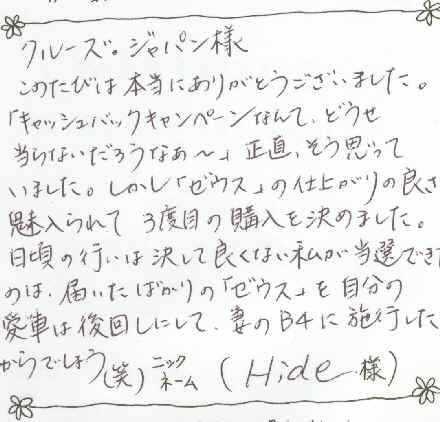 クルーズ。ジャパン様
このたびは本当にありがとうございました。
「キャッシュバックキャンペーンなんて、どうせ
当らないだろうなあ〜」正直、そう思って
いました。しかし「ゼウス」の仕上がりの良さ
魅入られて 3度目の購入を決めました。
日頃の行いは決して良くない私が当選でき
のは、届いたばかりの「ゼウス」を自分の
愛車は後回しにして、妻のB4に施行した
からでしょう(笑) ニックネーム (Hide様)